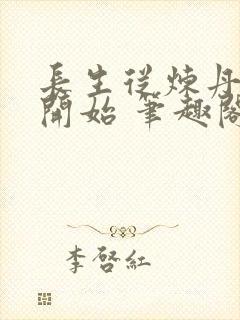 長生從煉丹
開始 筆趣閣
李啓紅